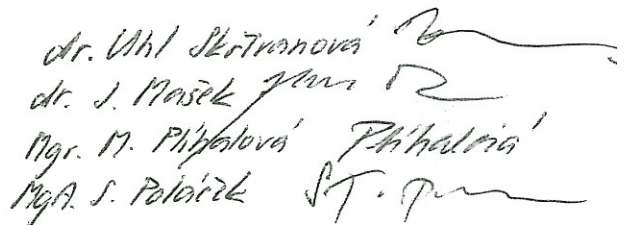 dr. Uhl Skřivanová
dr. J. Mašek
Mgr. M. Plíhalová Plíhalová
MgA. S. Poláček